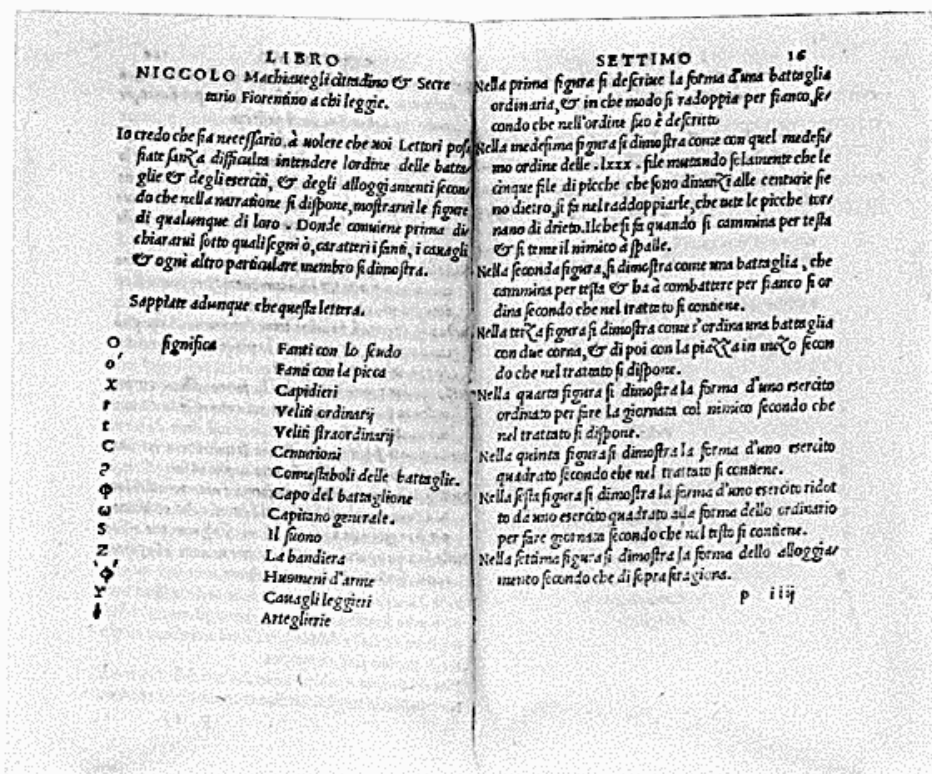 LIBRO
NICCOLO Machiauegli cittadino & Secre
tario Fiorentino a chi leggie.
Io credo che sia necessario, à uolere che uoi Lettori pos
siate sanza difficulta intendere lordine delle batta
glie & degli eserciti, & degli alloggiamenti secon
do che nella narratione si dispone, mostrarui le figure
di qualunque di loro. Donde conuiene prima di
chiararui sotto quali segni ò, caratteri i fanti, i cauagli
& ogni altro particulare membro si dimostra.
Sappiate adunque che questa lettera.
O significa Fanti con lo scudo
o' Fanti con la picca
x Capidieci
r Veliti ordinarij
t Veliti straordinarij
C Centurioni
Conestaboli delle battaglie.
Φ Capo del battaglione
ω Capitano generale.
S Il suono
Z La bandiera
Huomeni d'arme
Y Cauagli leggieri
Arteglierie
SETTIMO 16
Nella prima figura si descriue la forma d'una battaglia
ordinaria, & in che modo si radoppia per fianco, se/
condo che nell'ordine suo è descritto
Nella medesima figura si dimostra come con quel medesi/
mo ordine delle .lxxx. file mutando solamente che le
cinque file di picche che sono dinanzi alle centurie sie
no dietro, si fa nel raddoppiarle, che tute le picche tor/
nano di drieto. Ilche si fa quando si cammina per testa
& si teme il nimico à spalle.
Nella seconda figura, si dimostra come una battaglia, che
cammina per testa & ha à combattere per fianco si or
dina secondo che nel trattato si contiene.
Nella terza figura si dimostra come s'ordina una battaglia
con due corna, & di poi con la piazza in mezo secon
do che nel trattato si dispone.
Nella quarta figura si dimostra la forma d'uno esercito
ordinato per fare la giornata col nimico secondo che
nel trattato si dispone.
Nella quinta figura si dimostra la forma d'uno esercito
quadrato secondo che nel trattato si contiene.
Nella sesta figura si dimostra la forma d'uno esercito ridot
to da uno esercito quadrato alla forma dello ordinario
per fare giornata secondo che nel testo si contiene.
Nella settima figura si dimostra la forma dello alloggia/
mento secondo che di sopra si ragiona.
p iiij